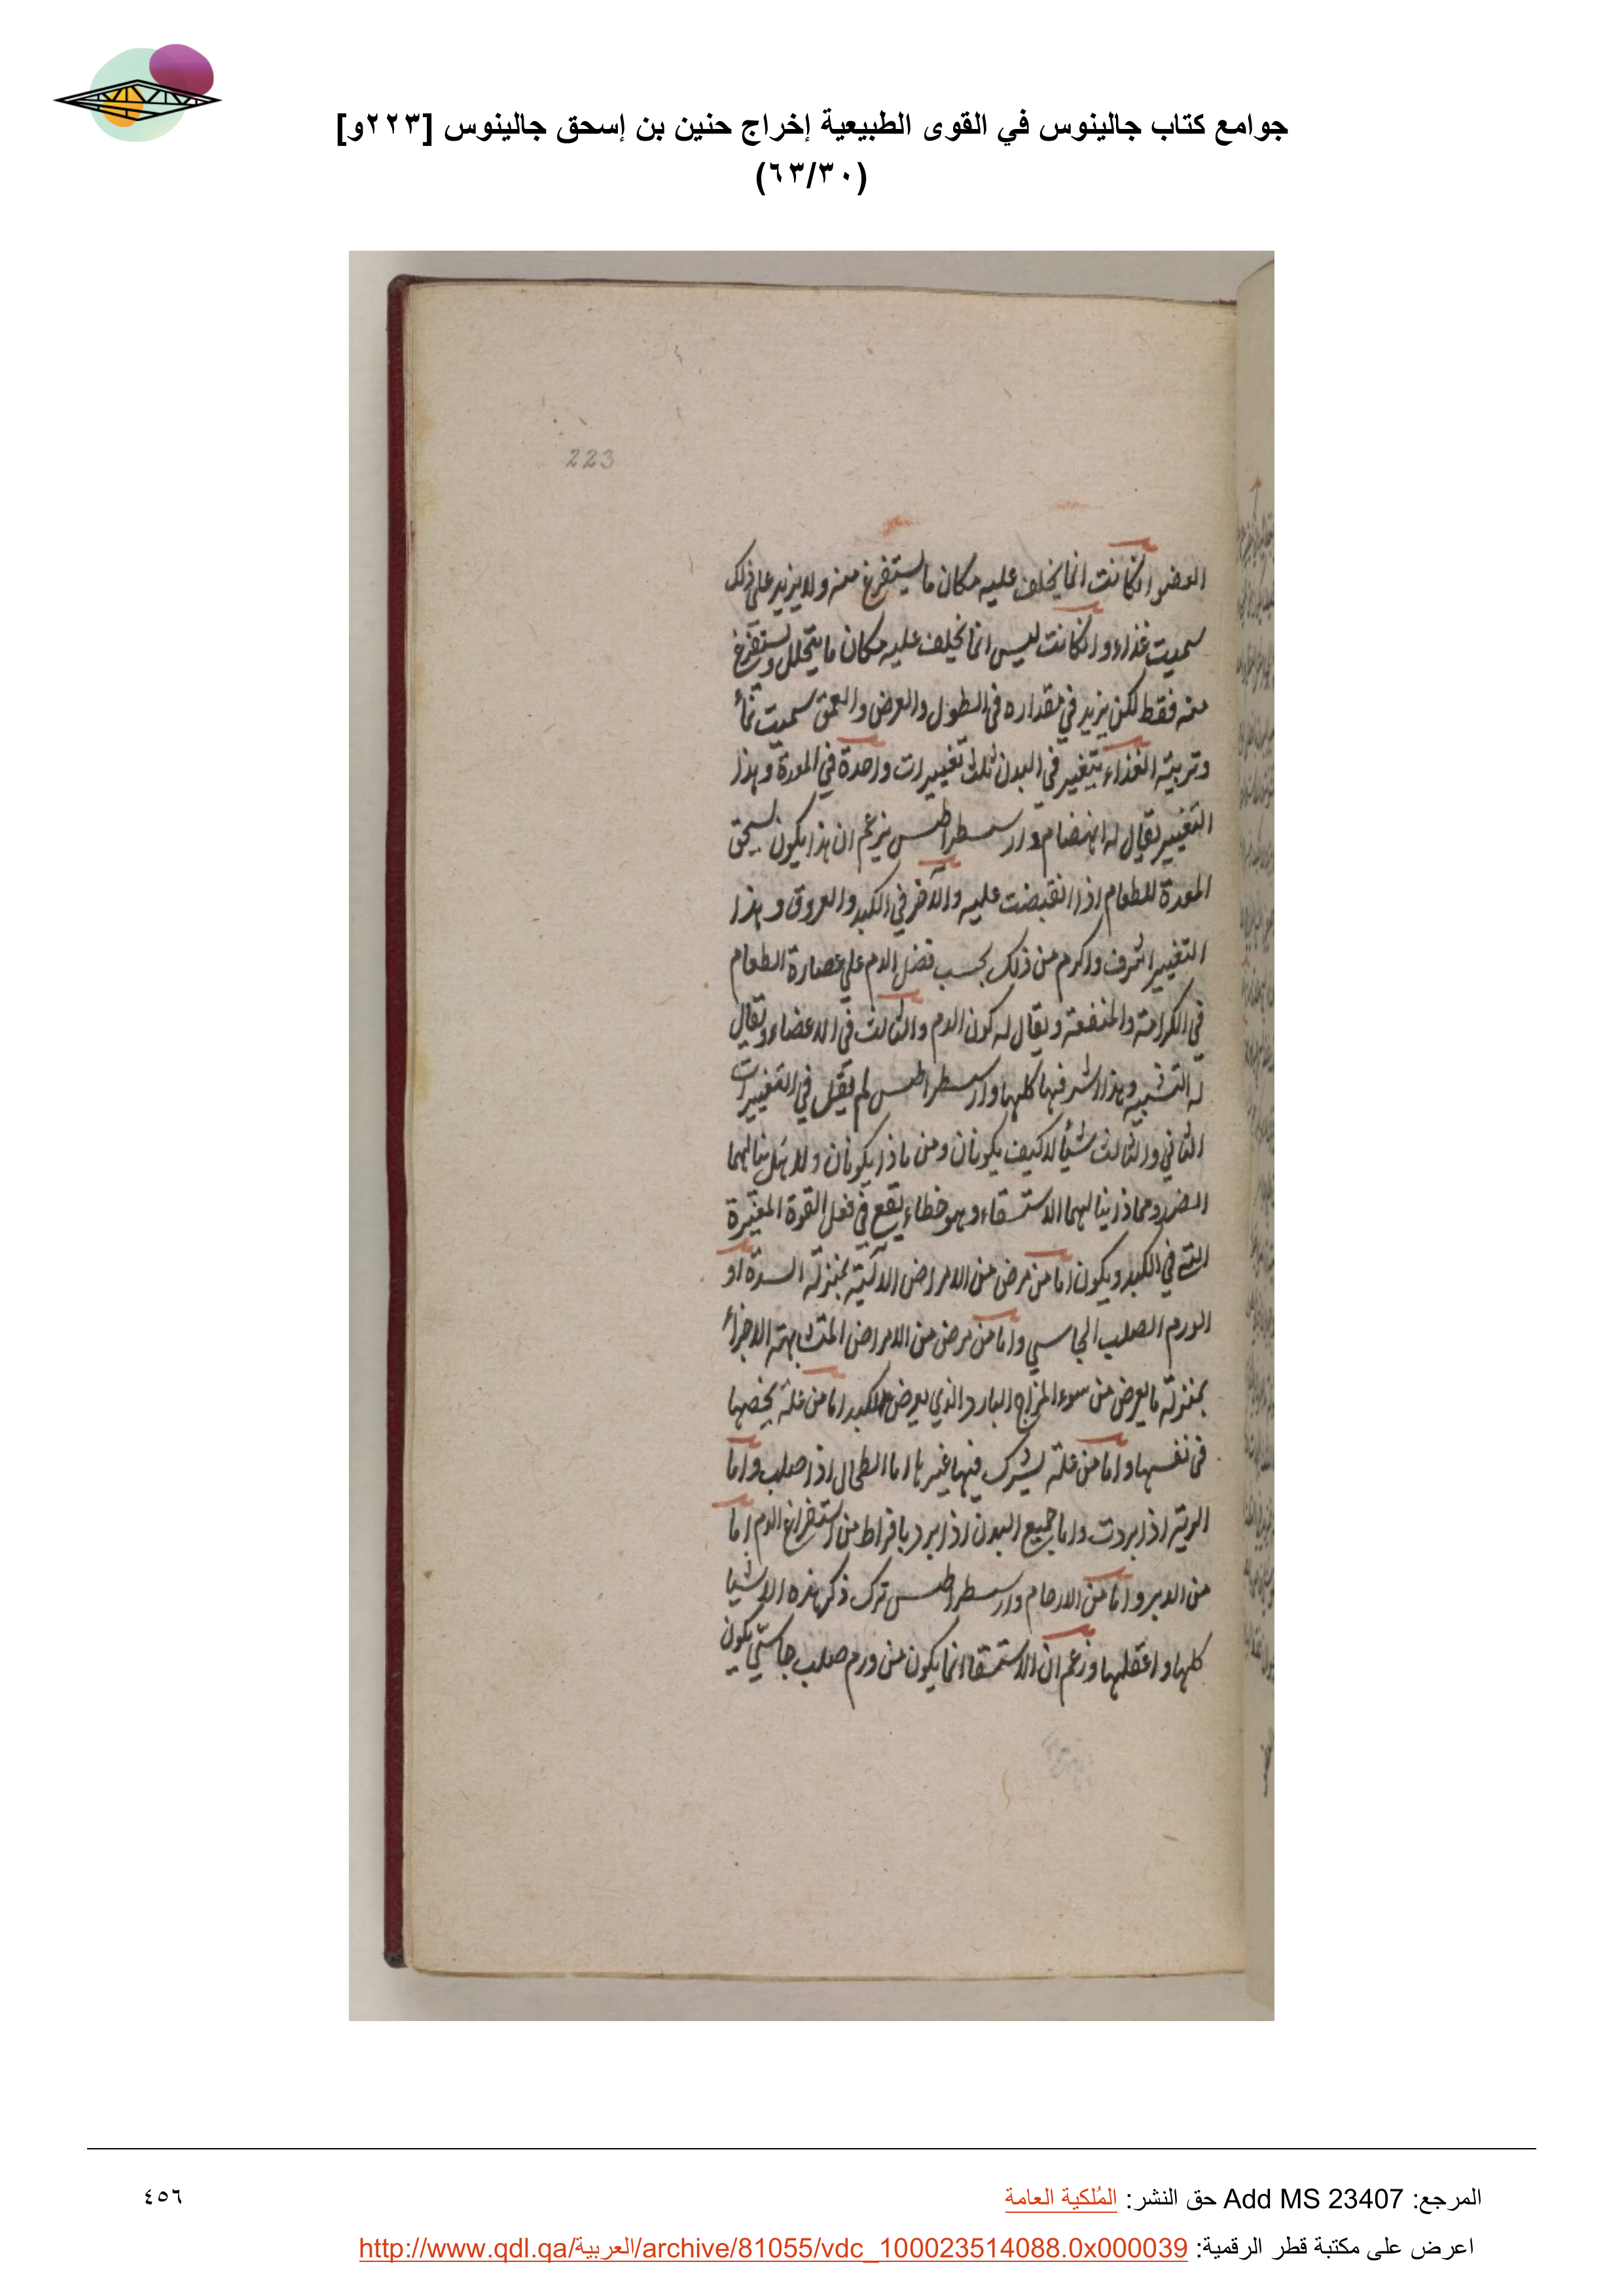 جوامع كتاب جالينوس في القوى الطبيعية إخراج حنين بن إسحق جالينوس [٢٢٣و]
(٦٣/٣٠)
223
العضو ان كانت انما يخلف عليه مكان ما يستفرغ منه ولا يزيد على ذلك
سميت غذاء وان كانت ليس انما يخلف عليه مكان ما يتحلل ويستفرغ
منه فقط لكن يزيد في مقداره في الطول والعرض والعمق سميت نمأ
وتربية الغذاء يتغير في البدن ثلث تغييرات واحدة في المعدة وهذا
التغيير يقال له انهضام وارسطراطس يزعم ان هذا يكون بسحق
المعدة للطعام اذا انقبضت عليه والآخر في الكبد والعروق وهذا
التغيير اشرف واكرم من ذلك بحسب فضل الدم على عصارة الطعام
في الكرامة والمنفعة ويقال له كون الدم والثالث في الاعضاء ويقال
له التشبيه وهذا اشرفها كلها وارسطراطس لم يقل في التغييرات
الثاني والثالث شيأ لا كيف يكونان ومن ماذا يكونان ولا هل ينالهما
الضرر ومماذا ينالهما الاستسقاء وهو خطاء يقع في فعل القوة المغيرة
التي في الكبد ويكون اما من مرض من الامراض الآلية بمنزلة السدة او
الورم الصلب الجاسي واما من مرض من الامراض المتشابهة الاجزأ
بمنزلة ما يعرض من سوء المزاج البارد الذي يعرض للكبد اما من علة يخصها
في نفسها واما من علة يشرك فيها غيرها اما الطحال اذا صلب واما
الرية اذا بردت واما جميع البدن اذا برد بافراط من استفراغ الدم اما
من الدبر واما من الارحام وارسطراطس ترك ذكر هذه الاشيا
كلها واغفلها وزعم ان الاستسقا انما يكون من ورم صلب جاسي يكون
المرجع: Add MS 23407 حق النشر: المُلكية العامة
٤٥٦
اعرض على مكتبة قطر الرقمية: http://www.qdl.qa/العربية/archive/81055/vdc_100023514088.0x000039